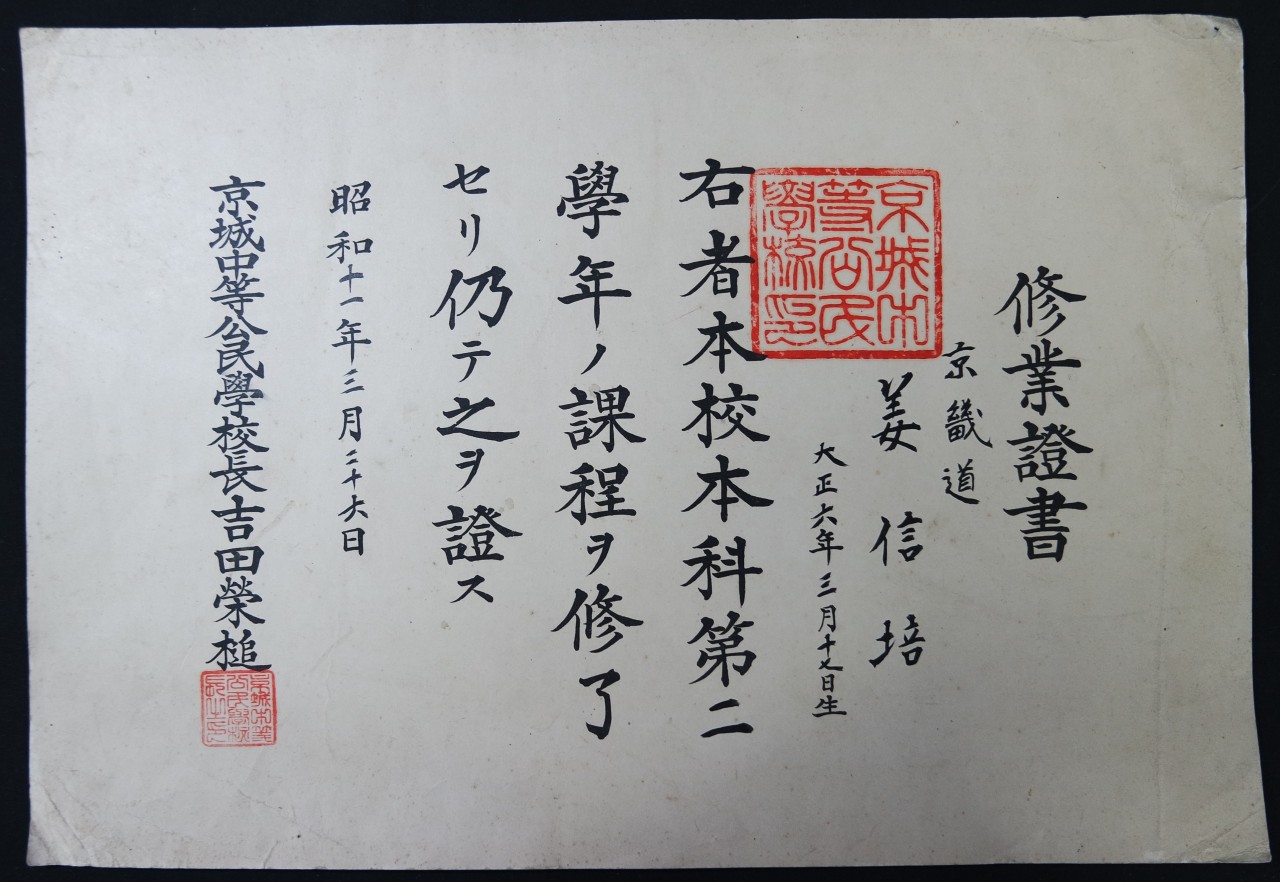 修業證書
京畿道
姜信培
大正六年三月十七日生
京城中
等公民
學校印
右者本校本科第二
學年ノ課程ヲ修了
セリ仍テ之ヲ證ス
昭和十一年三月二十六日
京城中等公民學校長吉田榮槌
京城中等
公民學校
長之印